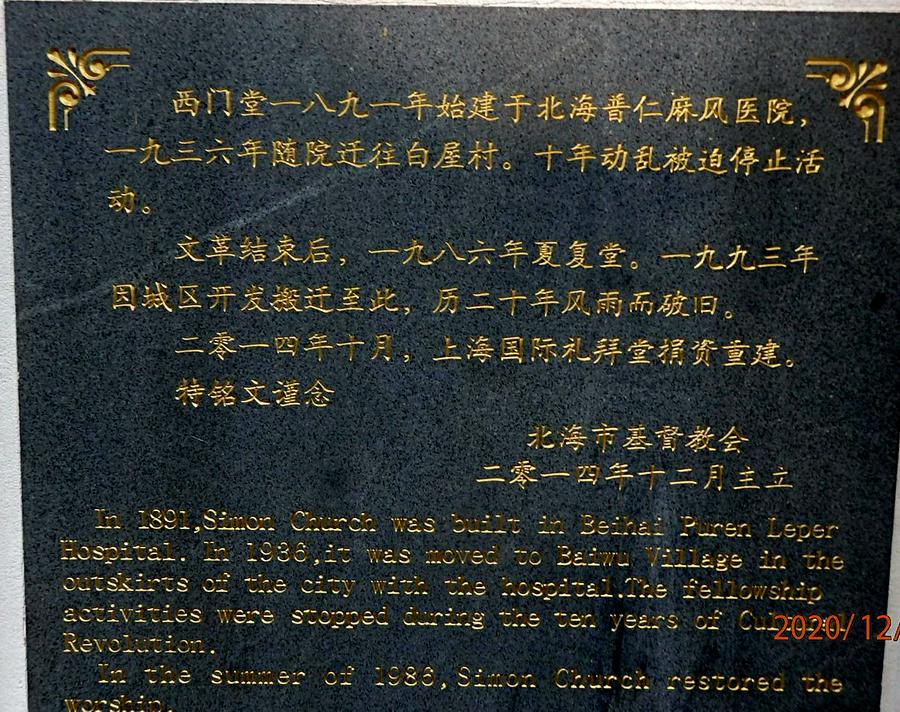 西门堂一八九一年始建于北海普仁麻风医院，
一九三六年随院迁往白屋村。十年动乱被迫停止活
动。
文革结束后，一九八六年夏复堂。一九九三年
因城区开发搬迁至此，历二十年风雨而破旧。
二零一四年十月，上海国际礼拜堂捐资重建。
特铭文谨念
北海市基督教会
二零一四年十二月主立
In 1891,Simon Church was built in Beihai Puren Leper
Hospital. In 1936,it was moved to Baiwu Village in the
outskirts of the city with the hospital.The fellowship
activities were stopped during the ten years of Cultural
Revolution.
In the summer of 1986,Simon Church restored the
worship.
2020/12/